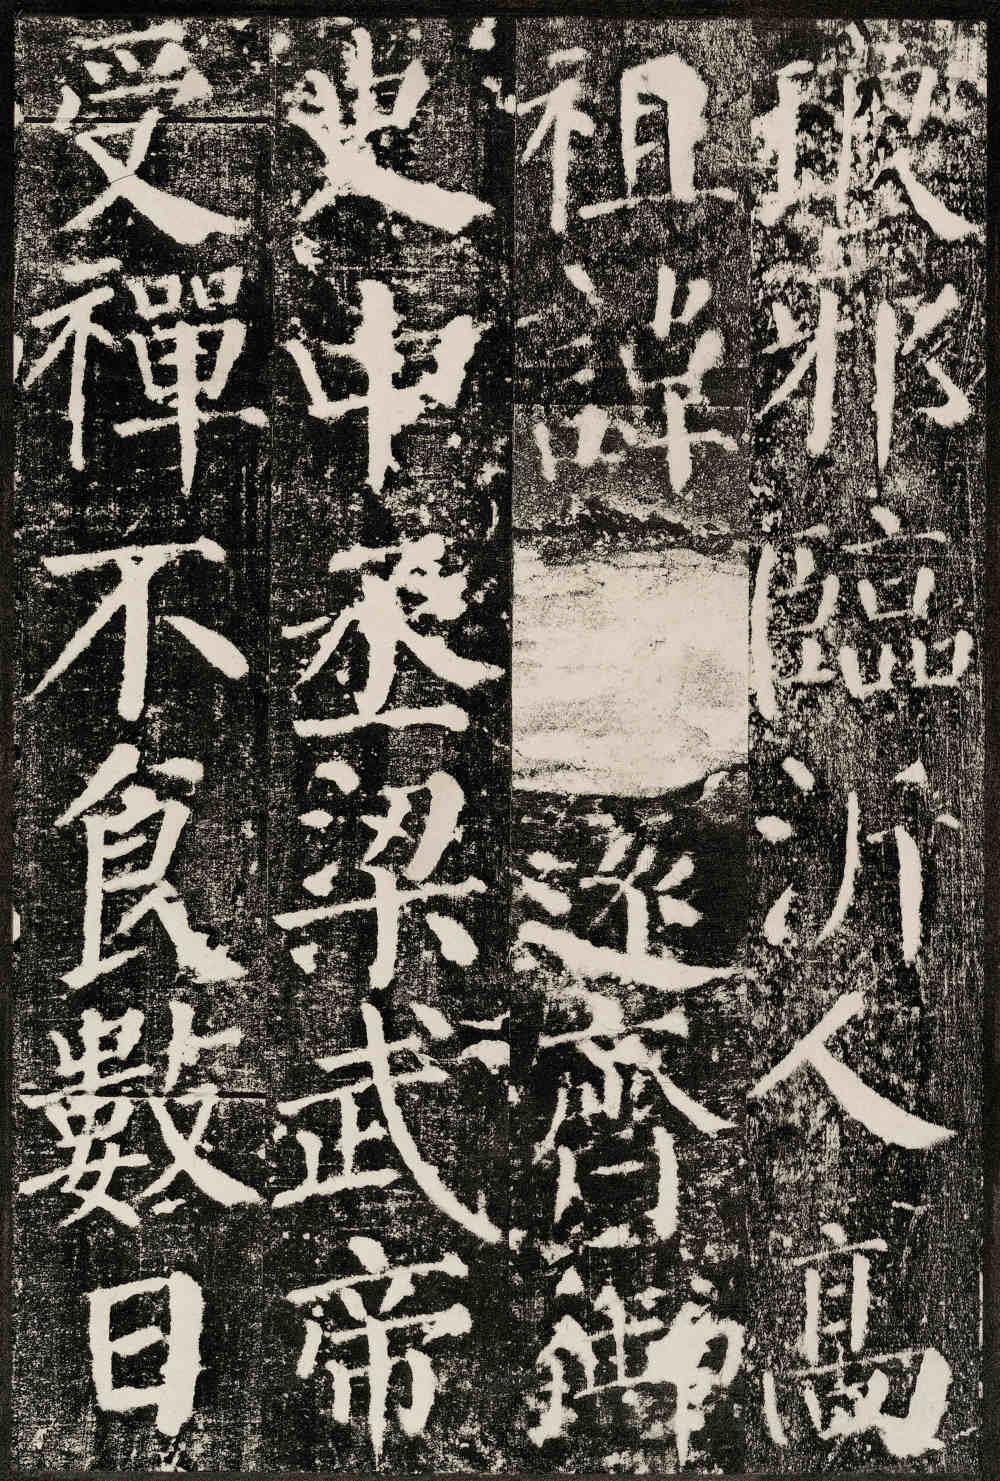 琅邪臨沂人高
祖諱遠齊御
史中丞梁武帝
受禪不食數日